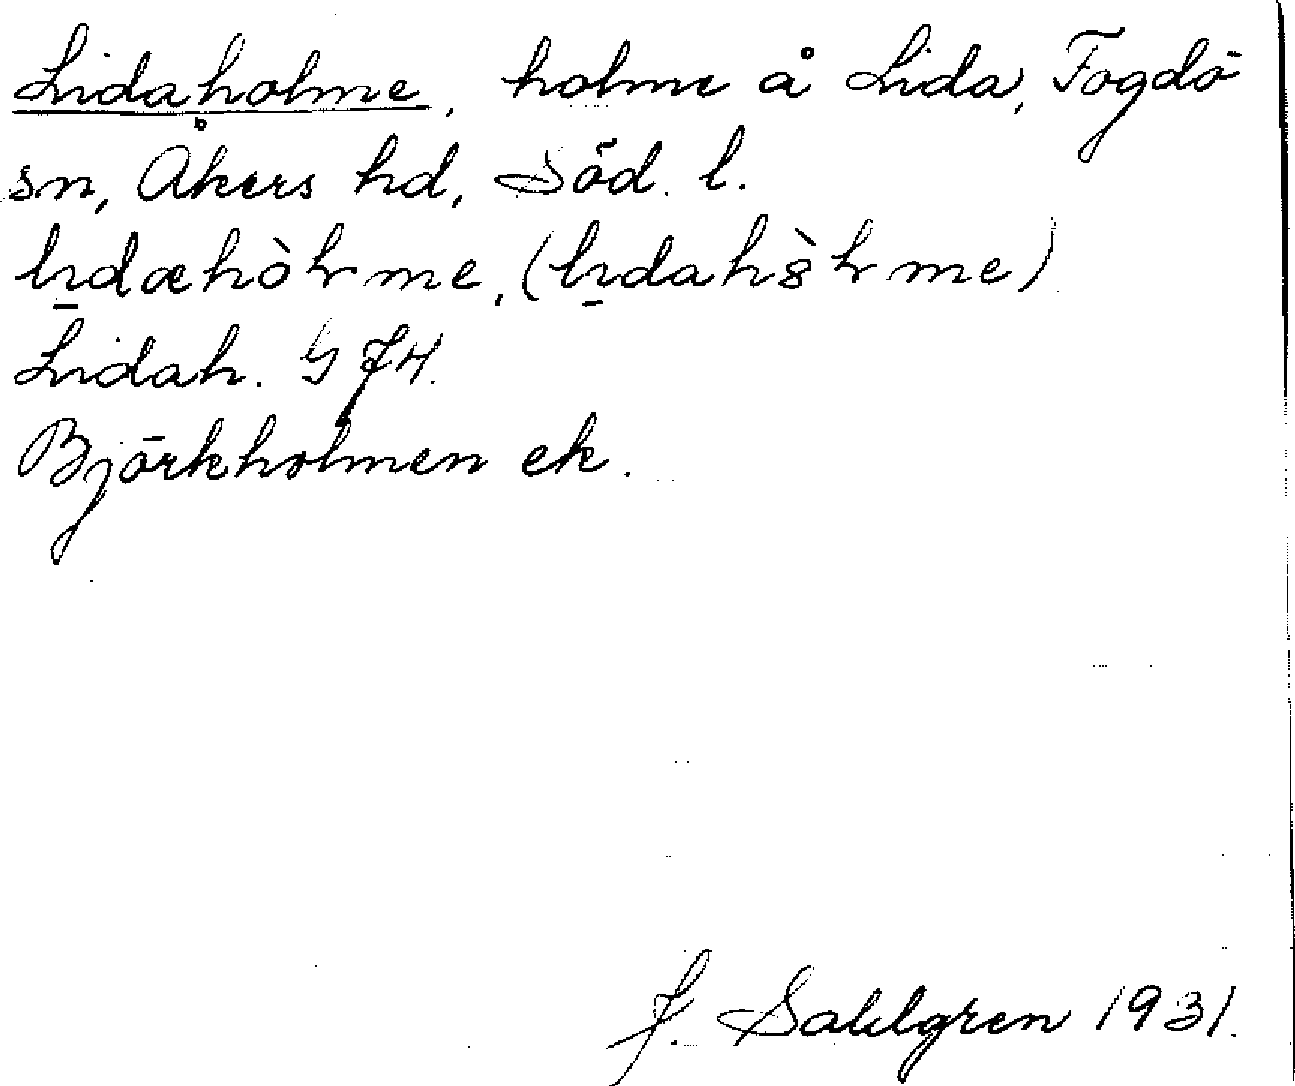 Lidaholme, holme å Lida, Fogdö
sn, Åkers hd, Söd. l.
li̱dæhòlme, (li̱dahòlme)
Lidah. G 74.
Björkholmen ek.
J. Sahlgren 1931.